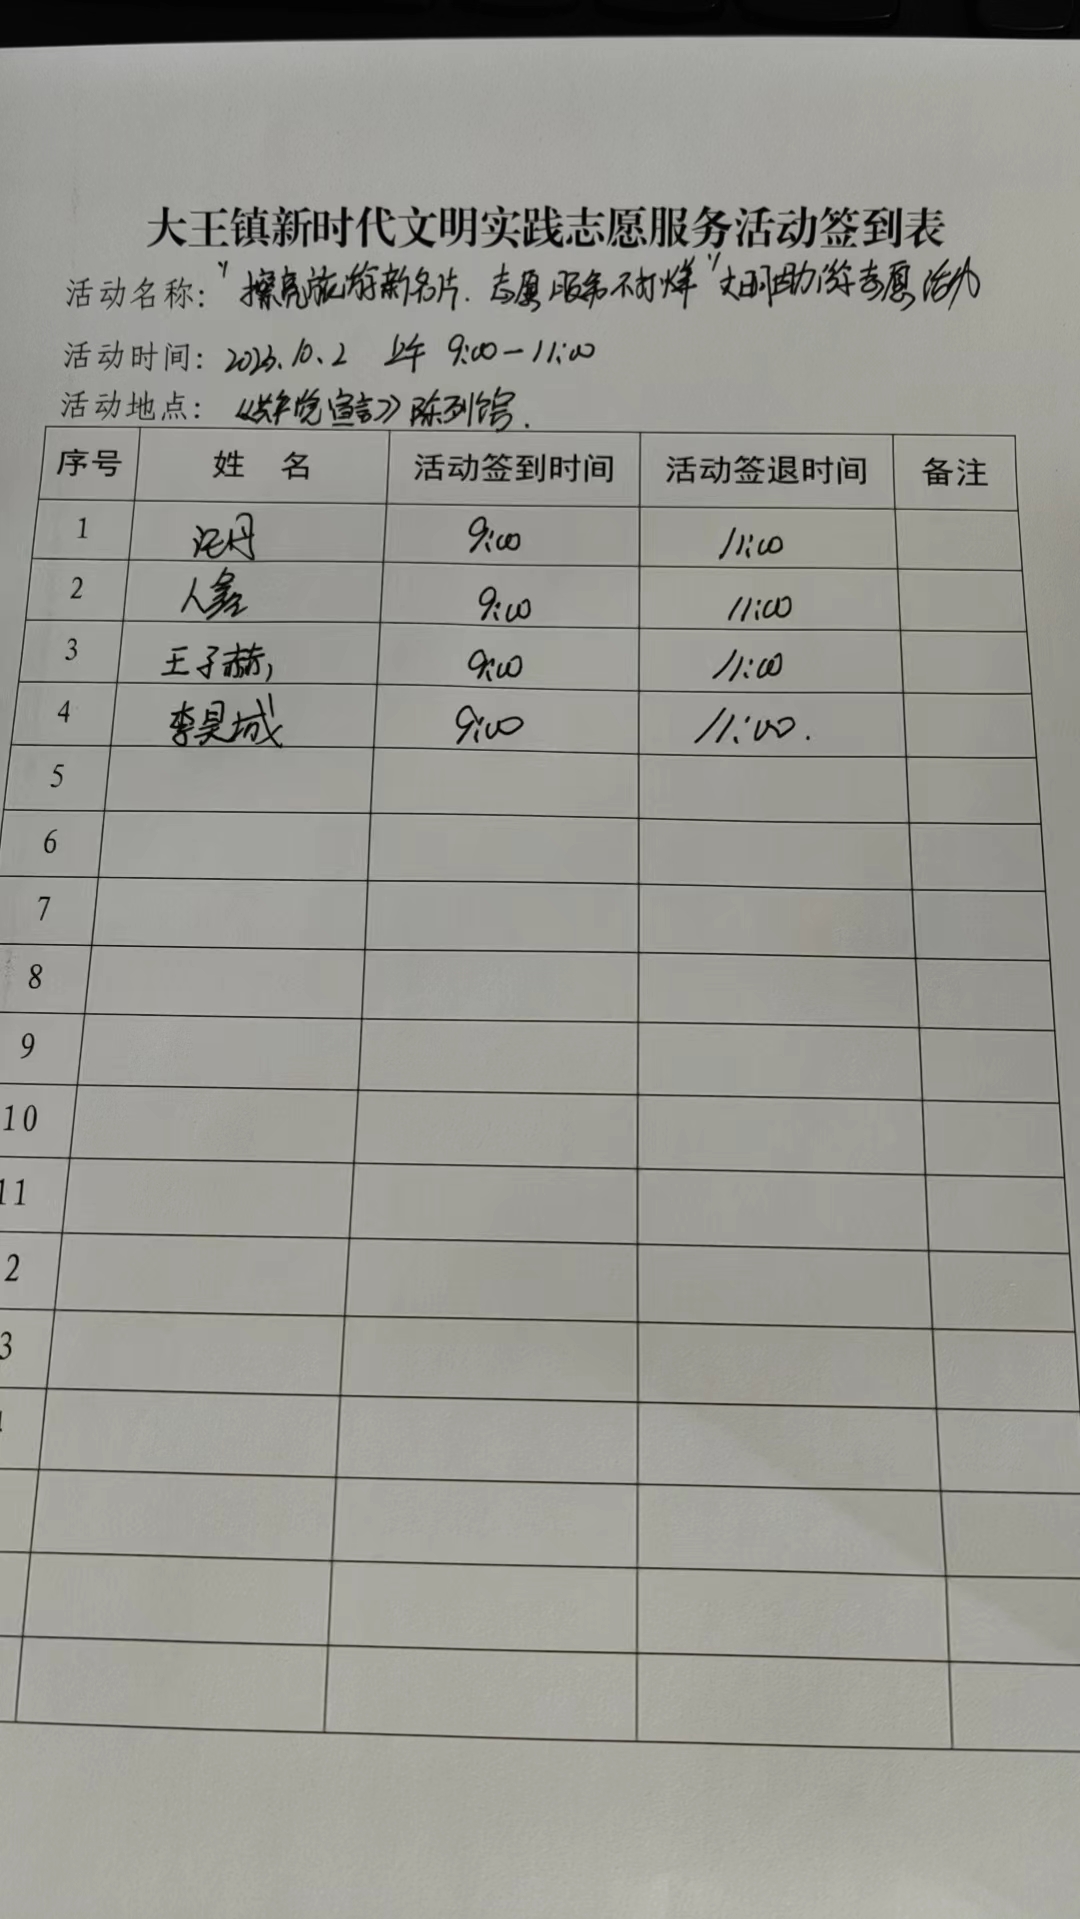 大王镇新时代文明实践志愿服务活动签到表
活动名称："擦亮旅游新名片.志愿服务不打烊"文明助游志愿活动
活动时间：2023.10.2 上午 9:00-11:00
活动地点：《共产党宣言》陈列馆.
序号 姓 名 活动签到时间 活动签退时间 备注
1 丹 9:00 11:00
2 人鑫 9:00 11:00
3 王子赫 9:00 11:00
4 李昊城 9:00 11:00.
5
6
7
8
9
10
11
2
3